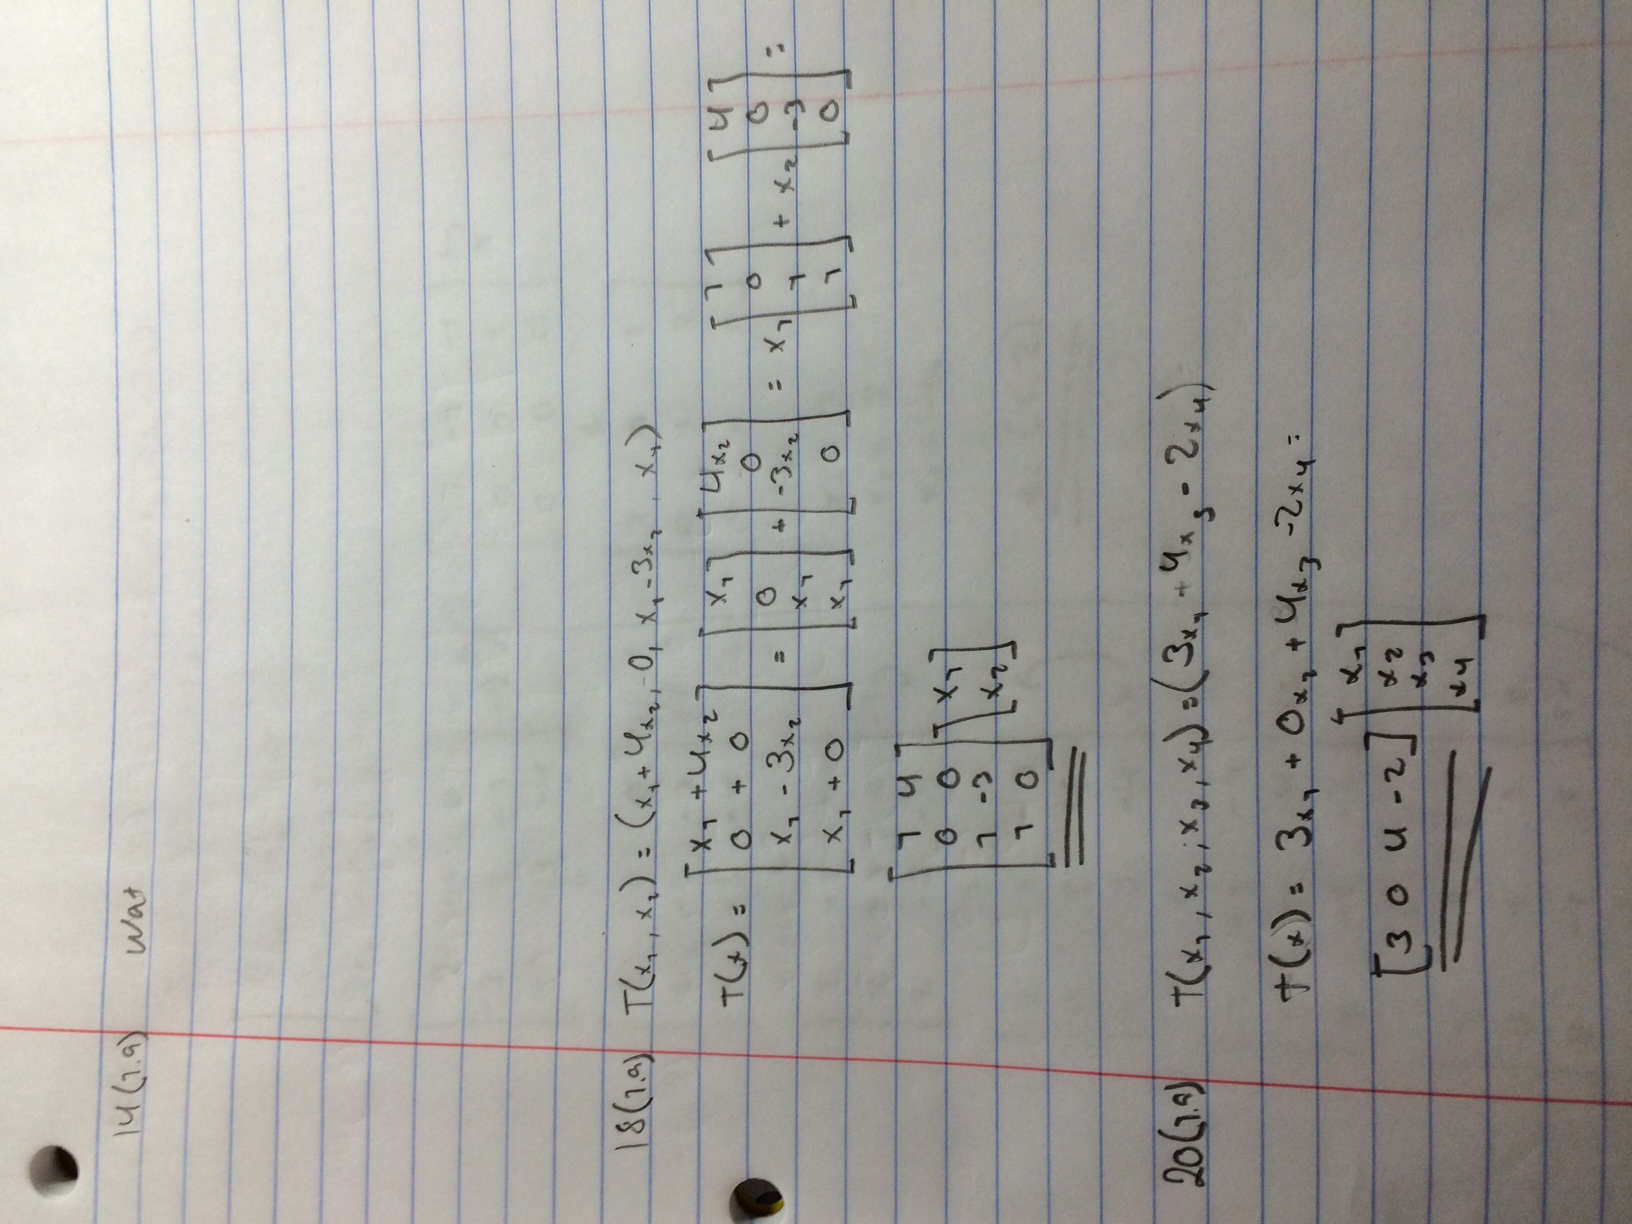 14(1.9) Wat
18(1.9) T(x₁, x₂) = (x₁ + 4x₂, 0, x₁ - 3x₂, x₁)
T(x) = [x₁ + 4x₂; 0 + 0; x₁ - 3x₂; x₁ + 0] = [x₁; 0; x₁; x₁] + [4x₂; 0; -3x₂; 0] = x₁ [1; 0; 1; 1] + x₂ [4; 0; -3; 0] =
[1 4; 0 0; 1 -3; 1 0] [x₁; x₂]
20(1.9) T(x₁, x₂, x₃, x₄) = (3x₁ + 4x₃ - 2x₄)
T(x) = 3x₁ + 0x₂ + 4x₃ - 2x₄ =
[3 0 4 -2] [x₁; x₂; x₃; x₄]